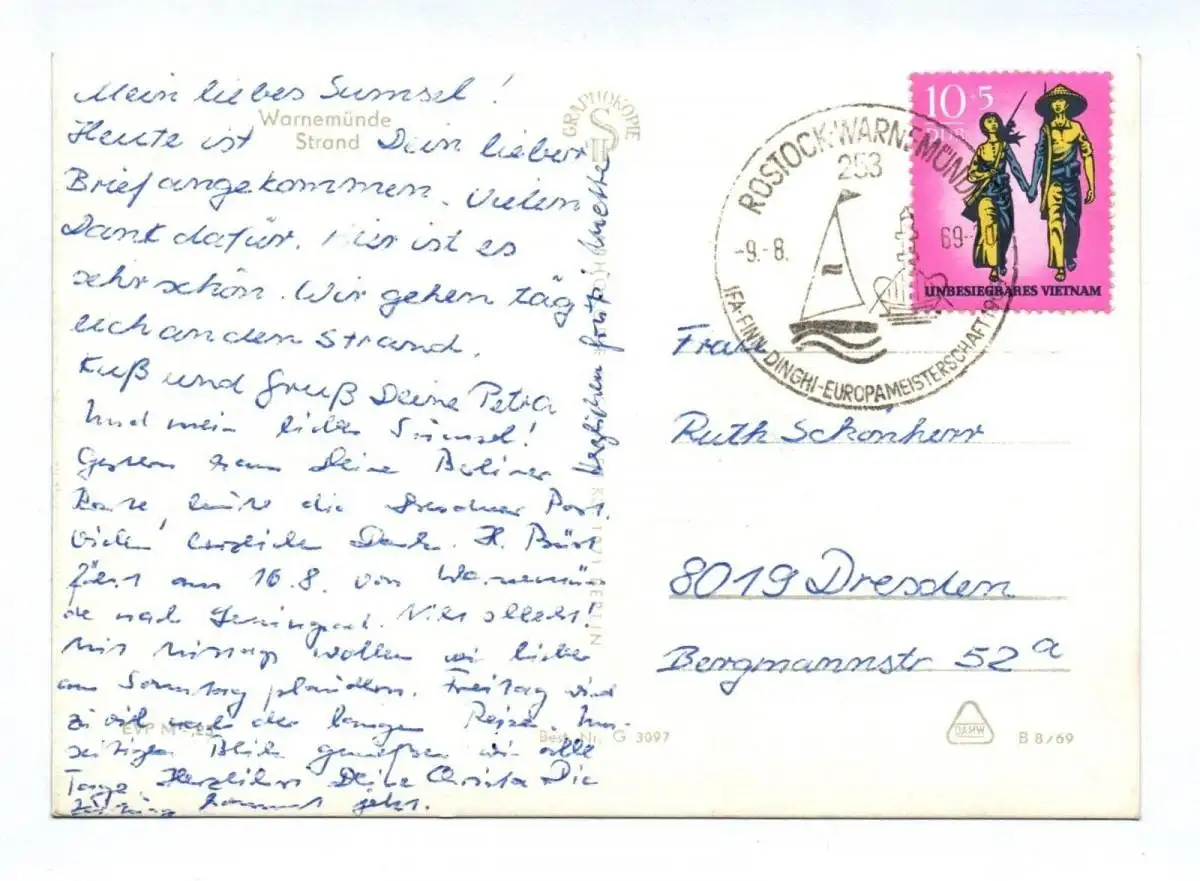 Mein liebes Sumsel!
Warnemünde
Strand
Heute ist Dein lieber
Brief angekommen. Vielen
Dank dafür. Hier ist es
sehr schön. Wir gehen täg
lich an den Strand.
Kuß und Gruß Deine Petra
Und mein liebes Sumsel!
Gestern kam Deine Berliner
Karte, heute die Dresdner Post.
Vielen herzlichen Dank. H.
fährt am 16.8. von Warnemün
de nach Leningrad.
wollen wir lieber
am Sonntag plaudern. Freitag wird
zu viel nach der langen Reise.
seitigen Blick genießen wir alle
Tage Herzlichst Deine Christa Die
Zeitung kommt jetzt.
Herzlichen Gruß
EVP M -,25
Best. Nr. G 3097
GRAPHOKOPIE
BERLIN
10+5
DDR
UNBESIEGBARES VIETNAM
ROSTOCK-WARNEMÜNDE
253
-9.-8. 69-
IFA-FINN-DINGHI-EUROPAMEISTERSCHAFT
Frau
Ruth Schönherr
8019 Dresden
Bergmannstr 52a
DAMW
B 8/69